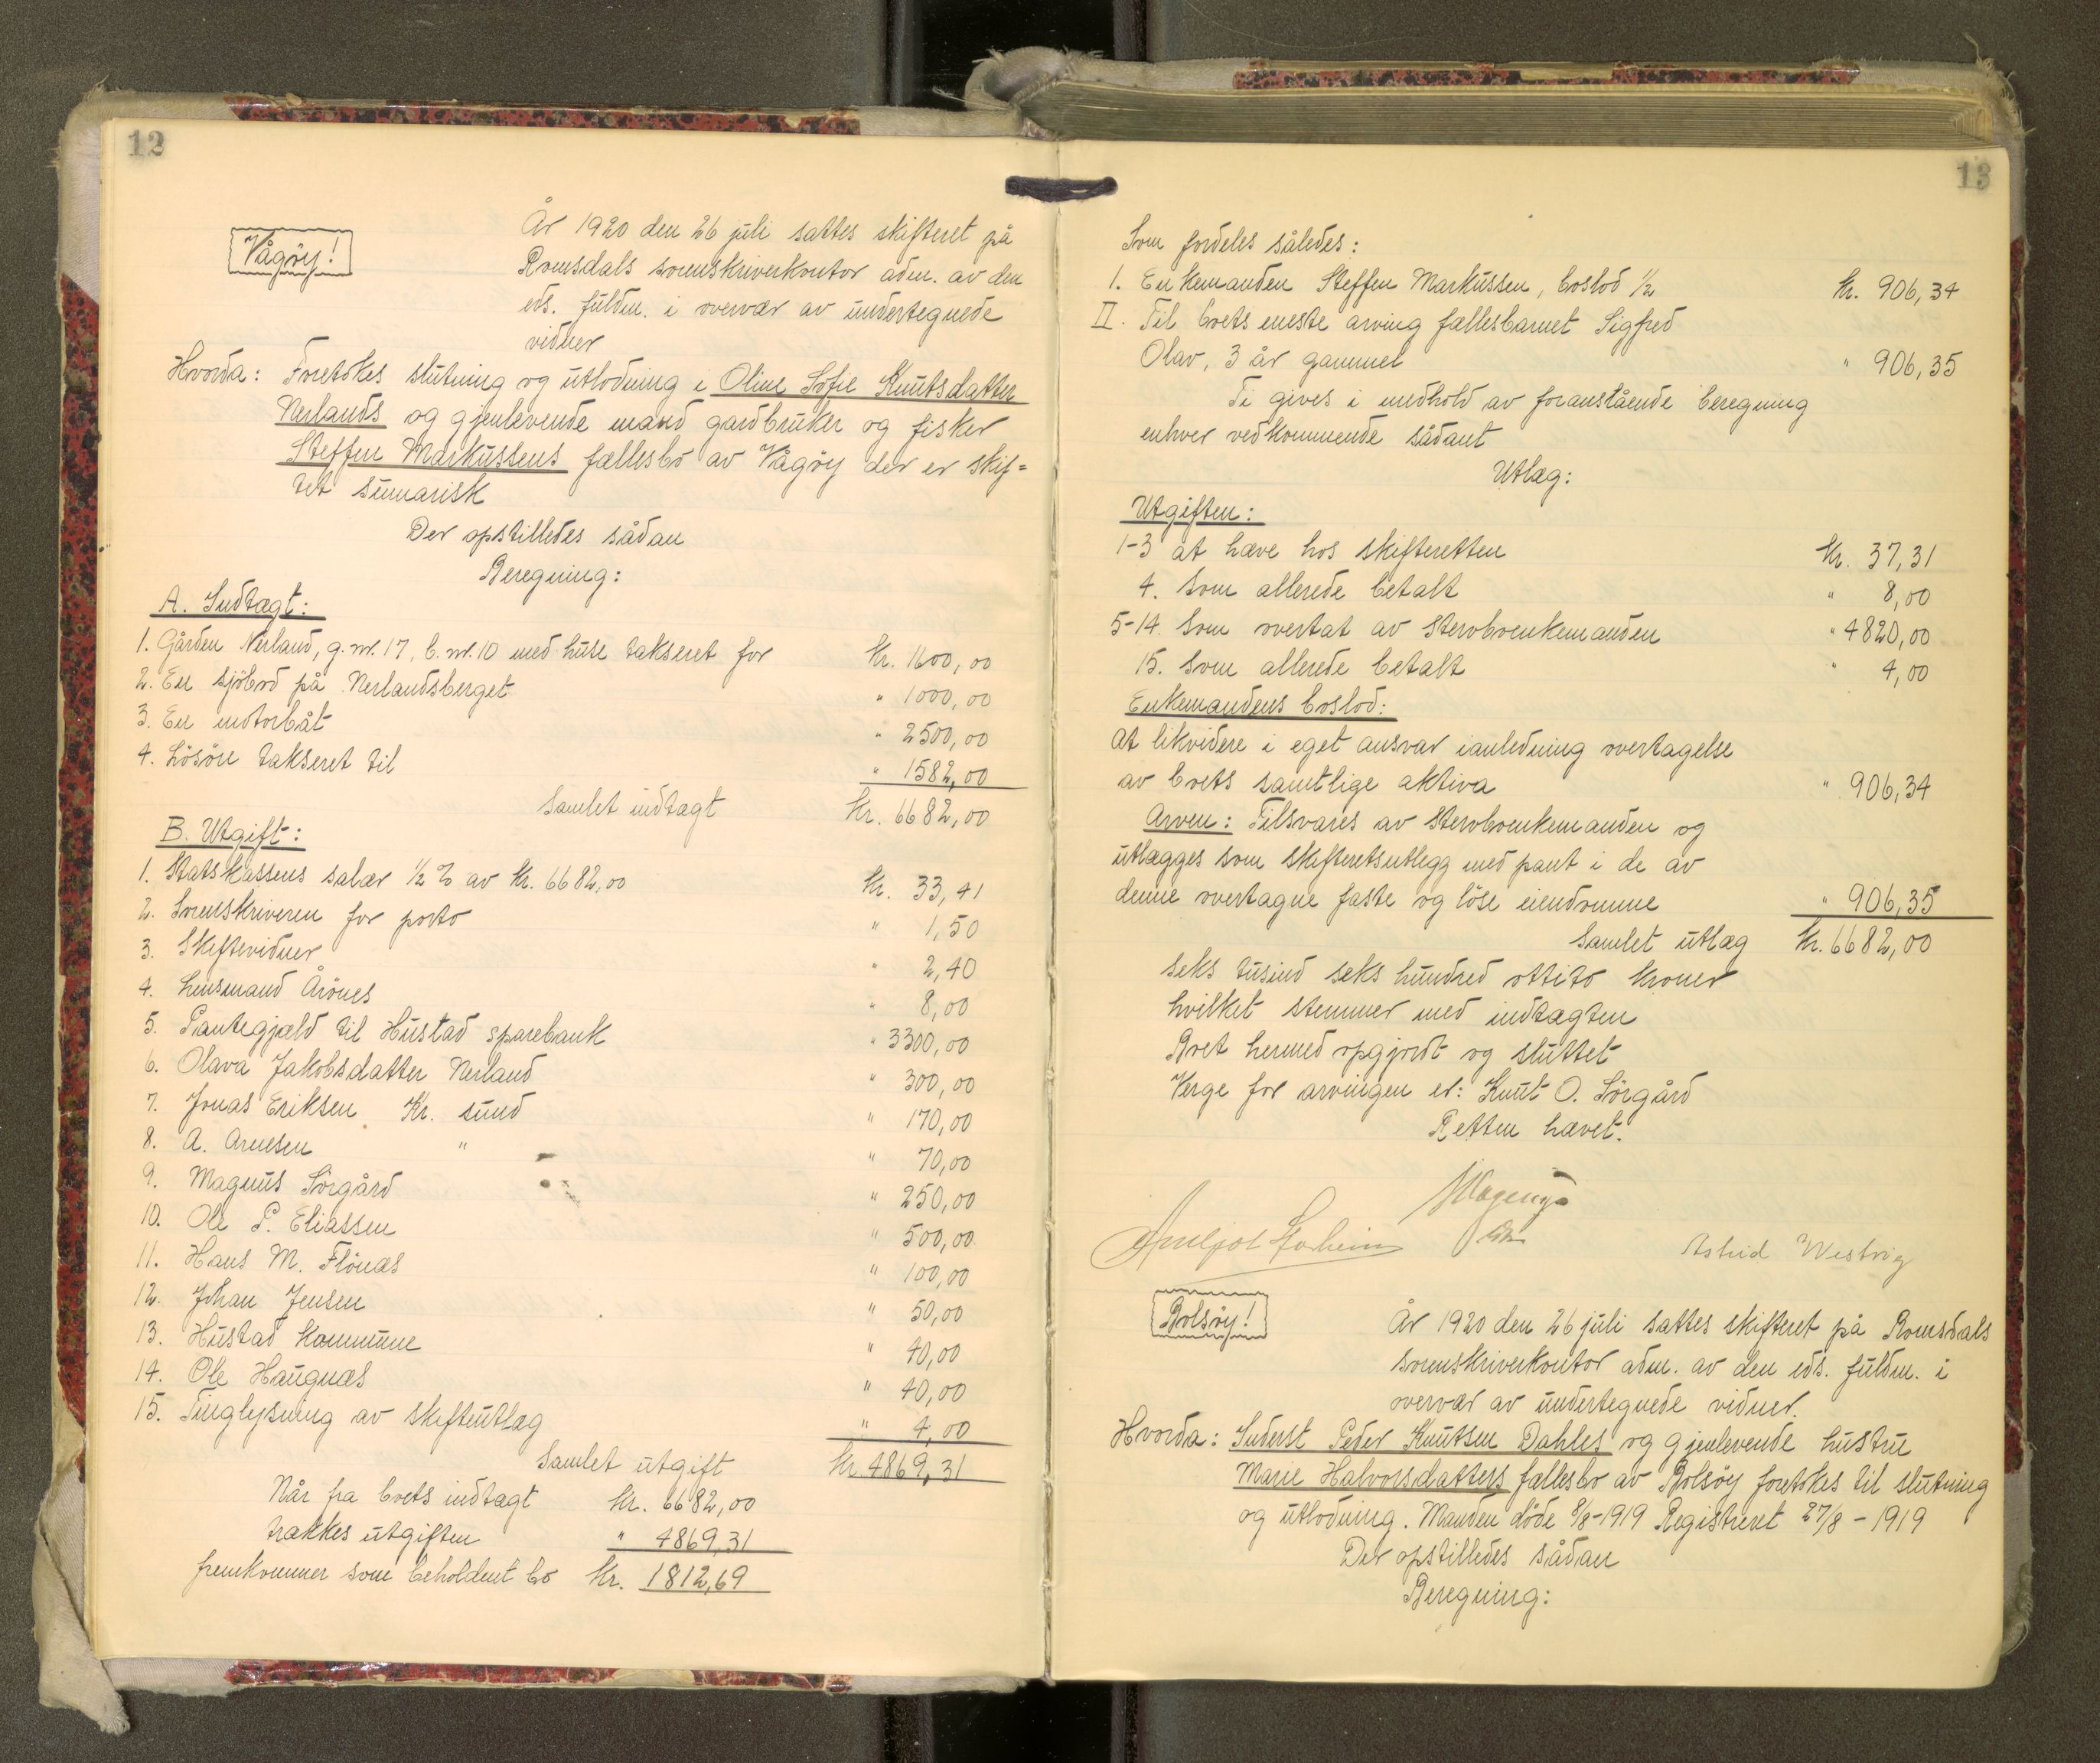 12
Vågöy!
År 1920 den 26 juli sattes skifteret på
Romsdals sorenskriverkontor adm. av den
eds. fuldm. i overvær av undertegnede
vidner
Hvorda: Foretokes slutning og utlodning i Oline Sofie Knutsdatter
Nerlands og gjenlevende mand gardbruker og fisker
Steffen Markussens fællesbo av Vågöy der er skif=
tet sumarisk
Der opstilledes sådan
Beregning:
A. Indtægt:
1. Gården Nerland, g.nr. 17, b.nr. 10 med huse takseret for kr. 1600,00
2. En sjöbod på Nerlandsberget " 1000,00
3. En motorbåt " 2500,00
4. Lösöre takseret til " 1582,00
Samlet indtægt kr. 6682,00
B. Utgift:
1. Statskassens salær ½ % av kr. 6682,00 kr. 33,41
2. Sorenskriveren for porto " 1,50
3. Skiftevidner " 2,40
4. Lensmand Årönes " 8,00
5. Pantegjæld til Hustad sparebank " 3300,00
6. Olava Jakobsdatter Nerland " 300,00
7. Jonas Eriksen Kr. sund " 170,00
8. A. Arnesen " " 70,00
9. Magnus Sörgård " 250,00
10. Ole P. Eliassen " 500,00
11. Hans M. Flönæs " 100,00
12. Johan Jensen " 50,00
13. Hustad kommune " 40,00
14. Ole Haugnæs " 40,00
15. Tinglysning av skifteutlæg " 4,00
Samlet utgift kr. 4869,31
Når fra boets indtægt kr. 6682,00
trækkes utgiften " 4869,31
fremkommer som beholdent bo kr. 1812,69
13
Som fordeles således:
1. Enkemanden Steffen Markussen, boslod ½ kr. 906,34
II. Til boets eneste arving fællesbarnet Sigfred
Olav, 3 år gammel " 906,35
Ti gives i medhold av foranstående beregning
enhver vedkommende sådant
Utlæg:
Utgiften:
1-3 at hæve hos skifteretten kr. 37,31
4. Som allerede betalt " 8,00
5-14. Som overtat av stervboenkemanden " 4820,00
15. Som allerede betalt " 4,00
Enkemandens boslod:
At likvidere i eget ansvar ianledning overtagelse
av boets samtlige aktiva " 906,34
Arven: Tilsvares av stervboenkemanden og
utlægges som skifteretsutlegg med pant i de av
denne overtagne faste og löse eiendomme " 906,35
Samlet utlæg kr. 6682,00
seks tusind seks hundred ottito kroner
hvilket stemmer med indtægten
Boet hermed opgjordt og sluttet
Verge for arvingen er: Knut O. Sörgård
Retten hævet.
Astrid Westvig
Bolsöy!
År 1920 den 26 juli sattes skifteret på Romsdals
sorenskriverkontor adm. av den eds. fuldm. i
overvær av undertegnede vidner.
Hvorda: Inderst Peder Knutsen Dahles og gjenlevende hustru
Marie Halvorsdatters fællesbo av Bolsöy foretokes til slutning
og utlodning. Manden döde 8/8-1919 Registreret 27/8-1919
Der opstilledes sådan
Beregning: